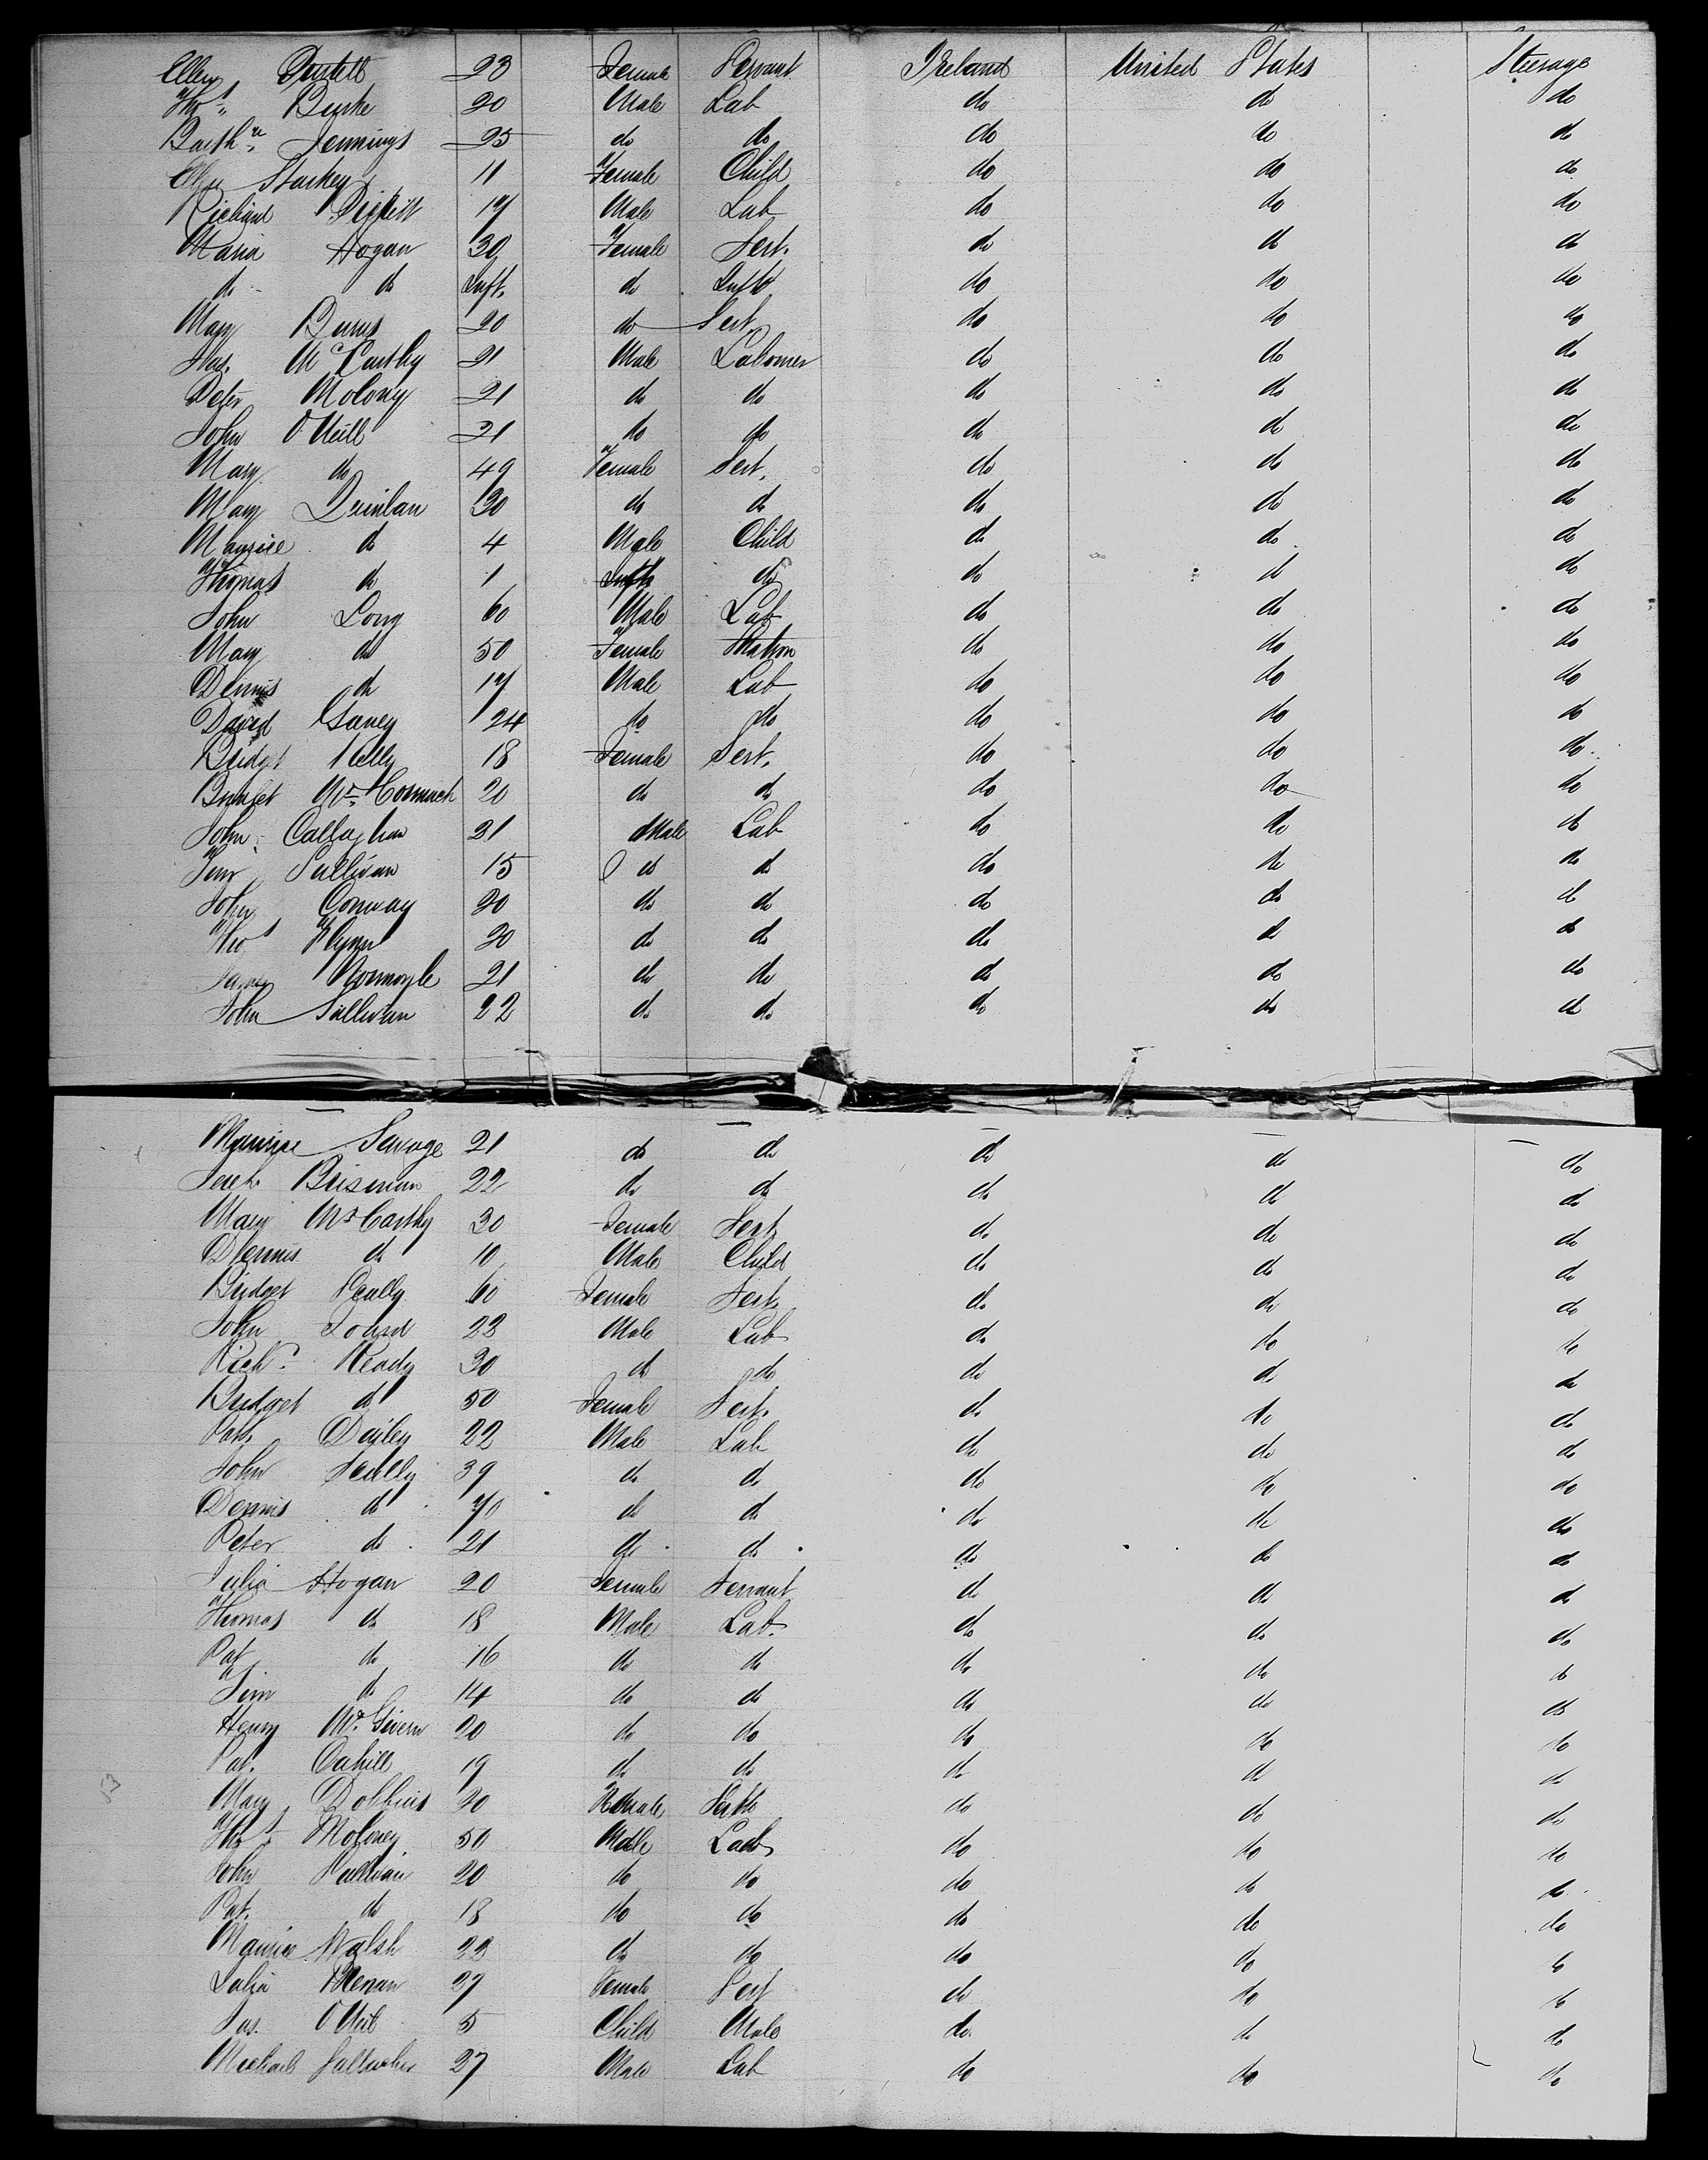 Ellen 23 Female Servant Ireland United States Steerage
Thos Burke 20 Male Lab do do do
Barthw Jennings 25 do do do do do
Starkey 11 Female Child do do do
Richard 17 Male Lab do do do
Maria Hogan 30 Female Sert. do do do
do do Inft. do Inft do do do
Mary Burns 20 do Sert. do do do
McCarthy 21 Male Labourer do do do
Peter Molony 21 do do do do do
John O'Neill 21 do do do do do
Mary do 49 Female Sert. do do do
Mary Quinlan 30 do do do do do
Maurice do 4 Male Child do do do
Thomas do 1 do do do do
John Long 60 Male Lab do do do
Mary do 50 Female Matron do do do
Dennis do 17 Male Lab do do do
David 24 do do do do do
Bridget Kelly 18 Female Sert. do do do
Bridget McCormack 20 do do do do do
John Callaghan 21 Male Lab do do do
Sullivan 15 do do do do do
John Conway 20 do do do do do
Thos Flynn 20 do do do do do
James Normoyle 21 do do do do do
John Sullivan 22 do do do do do
Maurice Savage 21 do do do do do
22 do do do do do
Mary McCarthy 30 Female Sert. do do do
Dennis do 10 Male Child do do do
Bridget 60 Female Sert. do do do
John 23 Male Lab do do do
Richd Ready 30 do do do do do
Bridget do 50 Female Sert. do do do
Pat 22 Male Lab do do do
John Scully 39 do do do do do
Dennis do 70 do do do do do
Peter do 21 do do do do do
Julia Hogan 20 Female Servant do do do
Thomas do 18 Male Lab. do do do
Pat do 16 do do do do do
Tim do 14 do do do do do
Henry McGivern 20 do do do do do
Pat. Cahill 19 do do do do do
Mary Dobbins 20 Female do do do
Thos Moloney 50 Male Lab do do do
John Sullivan 20 do do do do do
Pat. do 18 do do do do do
Maurice Walsh 22 do do do do do
27 Female Sert do do do
Jas. O'Neil 5 Child Male do do do
Michael Gallagher 27 Male Lab do do do